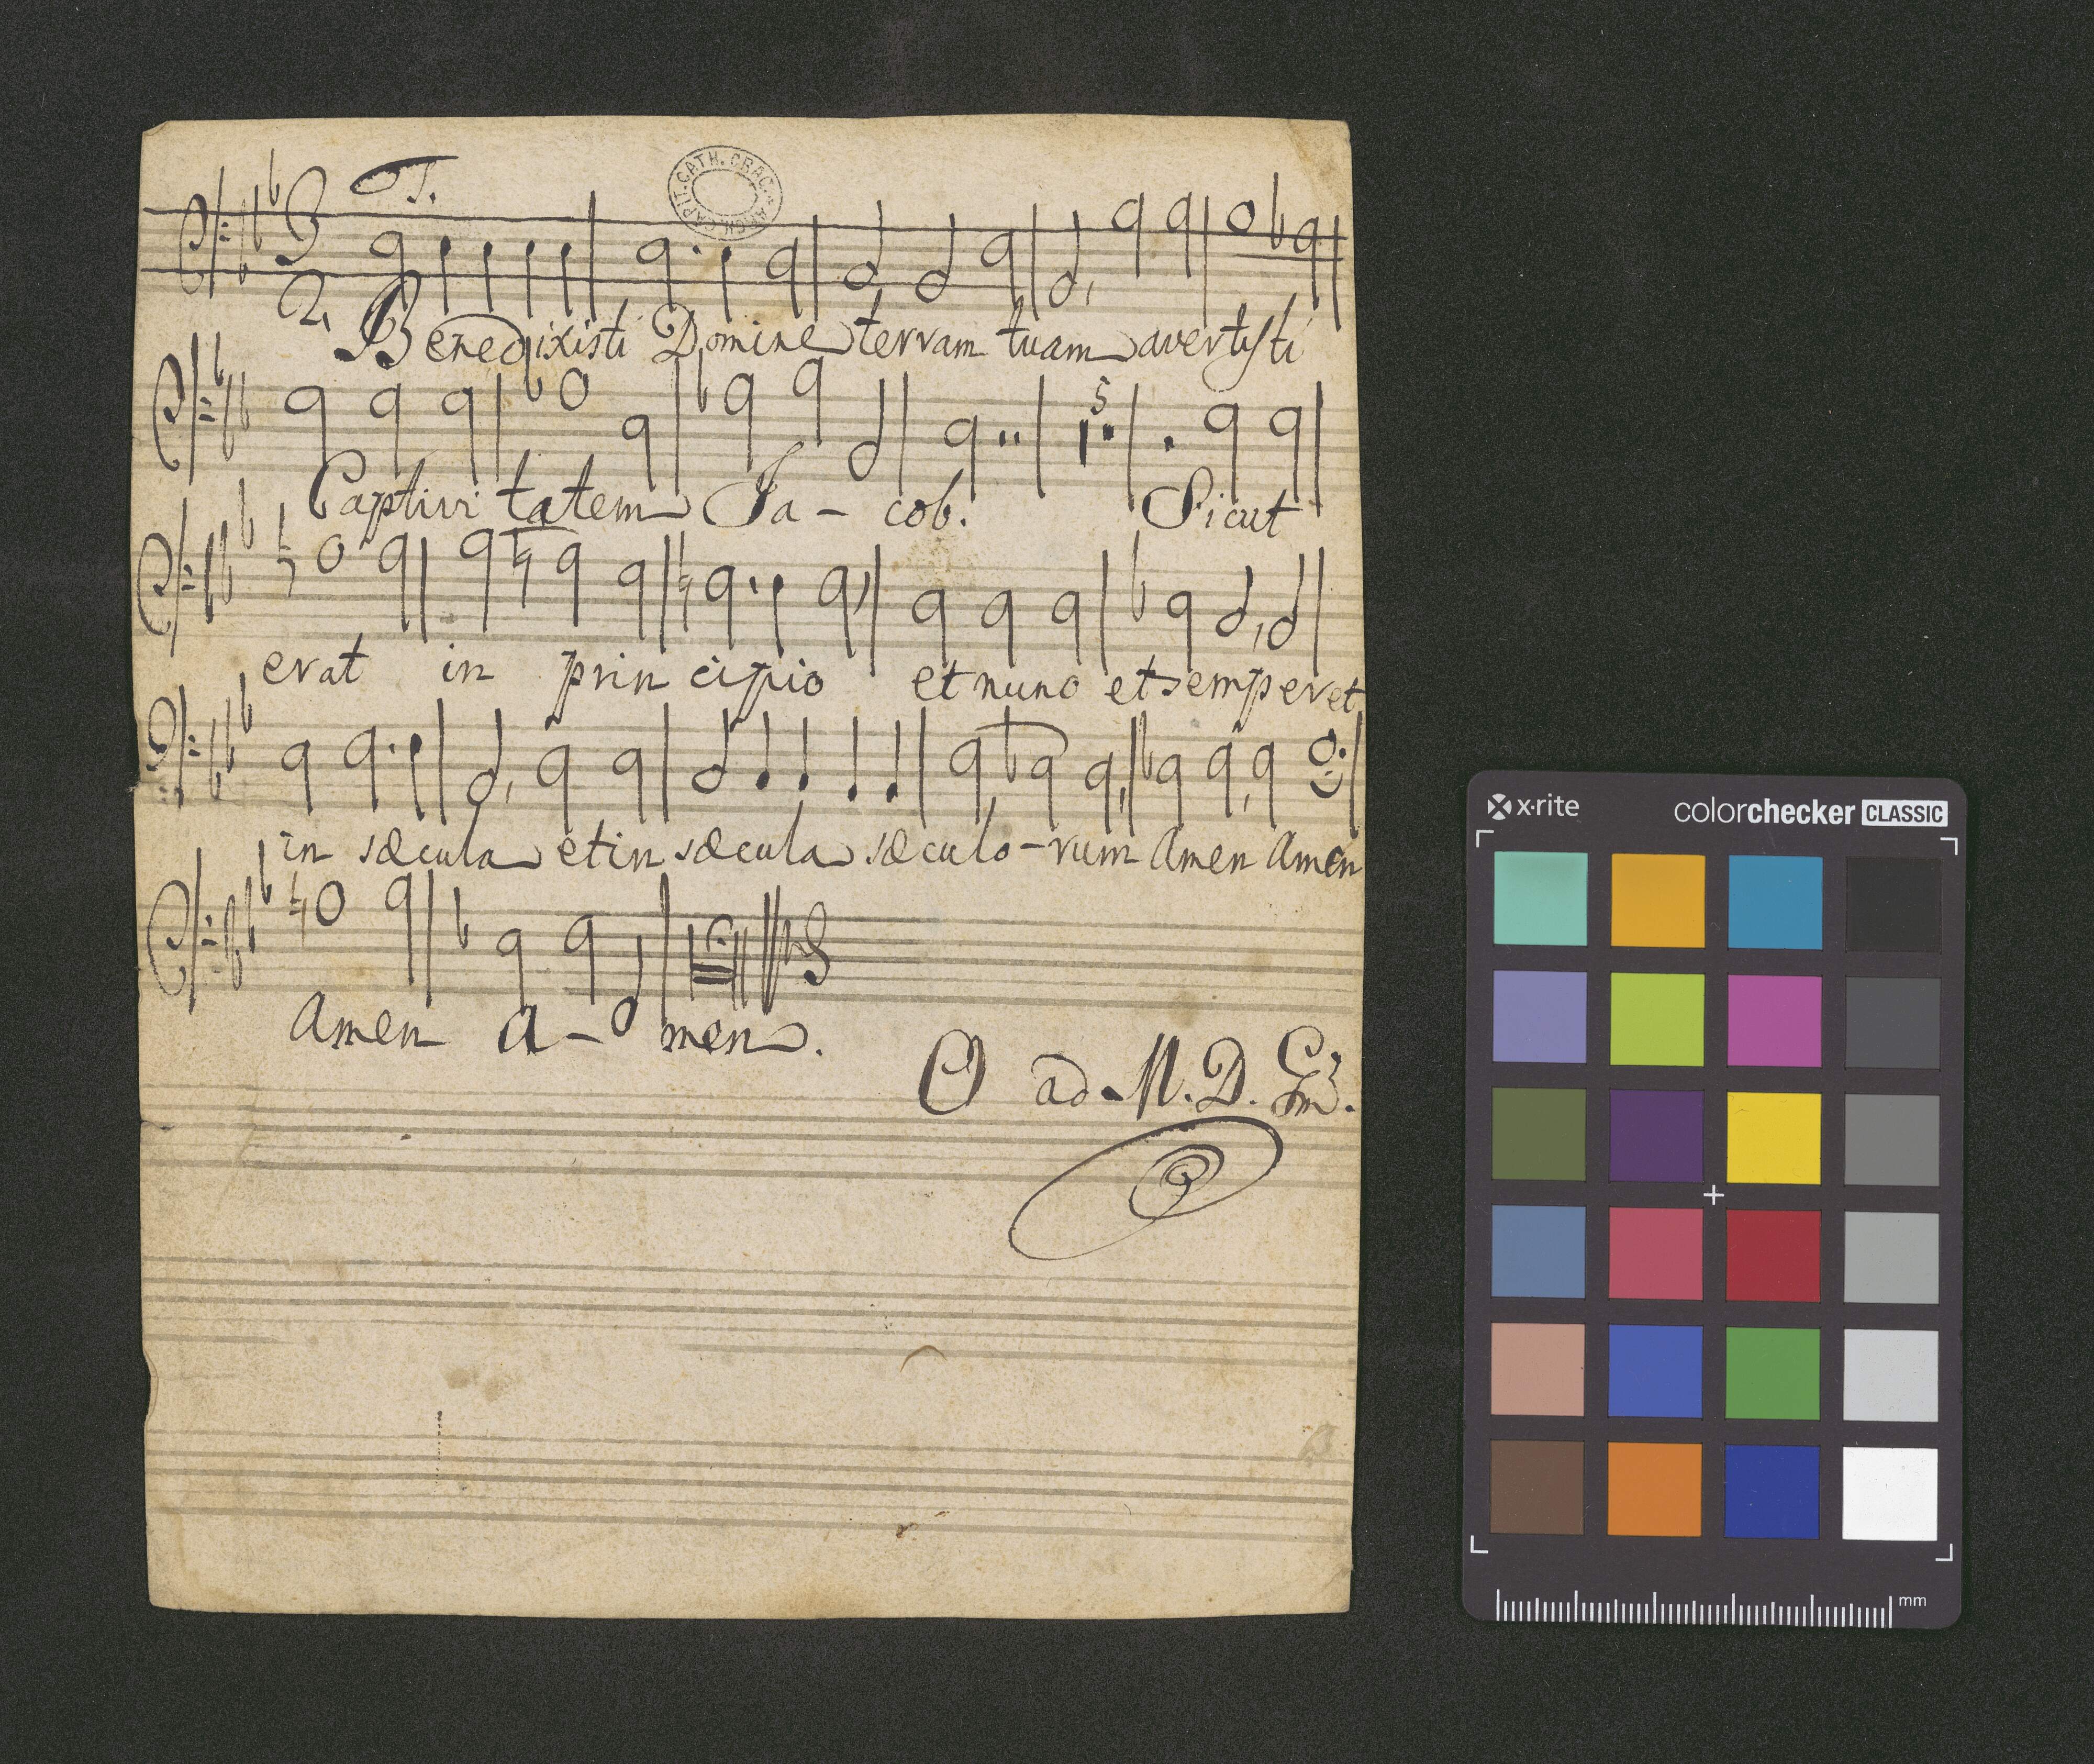 T.
ARCH. CAPIT. CATH. CRAC.
3
2.
Benedixisti Domine terram tuam avertisti
5
Captivi tatem Ja - cob. Sicut
erat in prin cipio et nunc et semper et
in sæcula et in sæcula sæculo - rum Amen Amen
Amen A - men.
O ad M. D. G.
x·rite colorchecker CLASSIC
mm